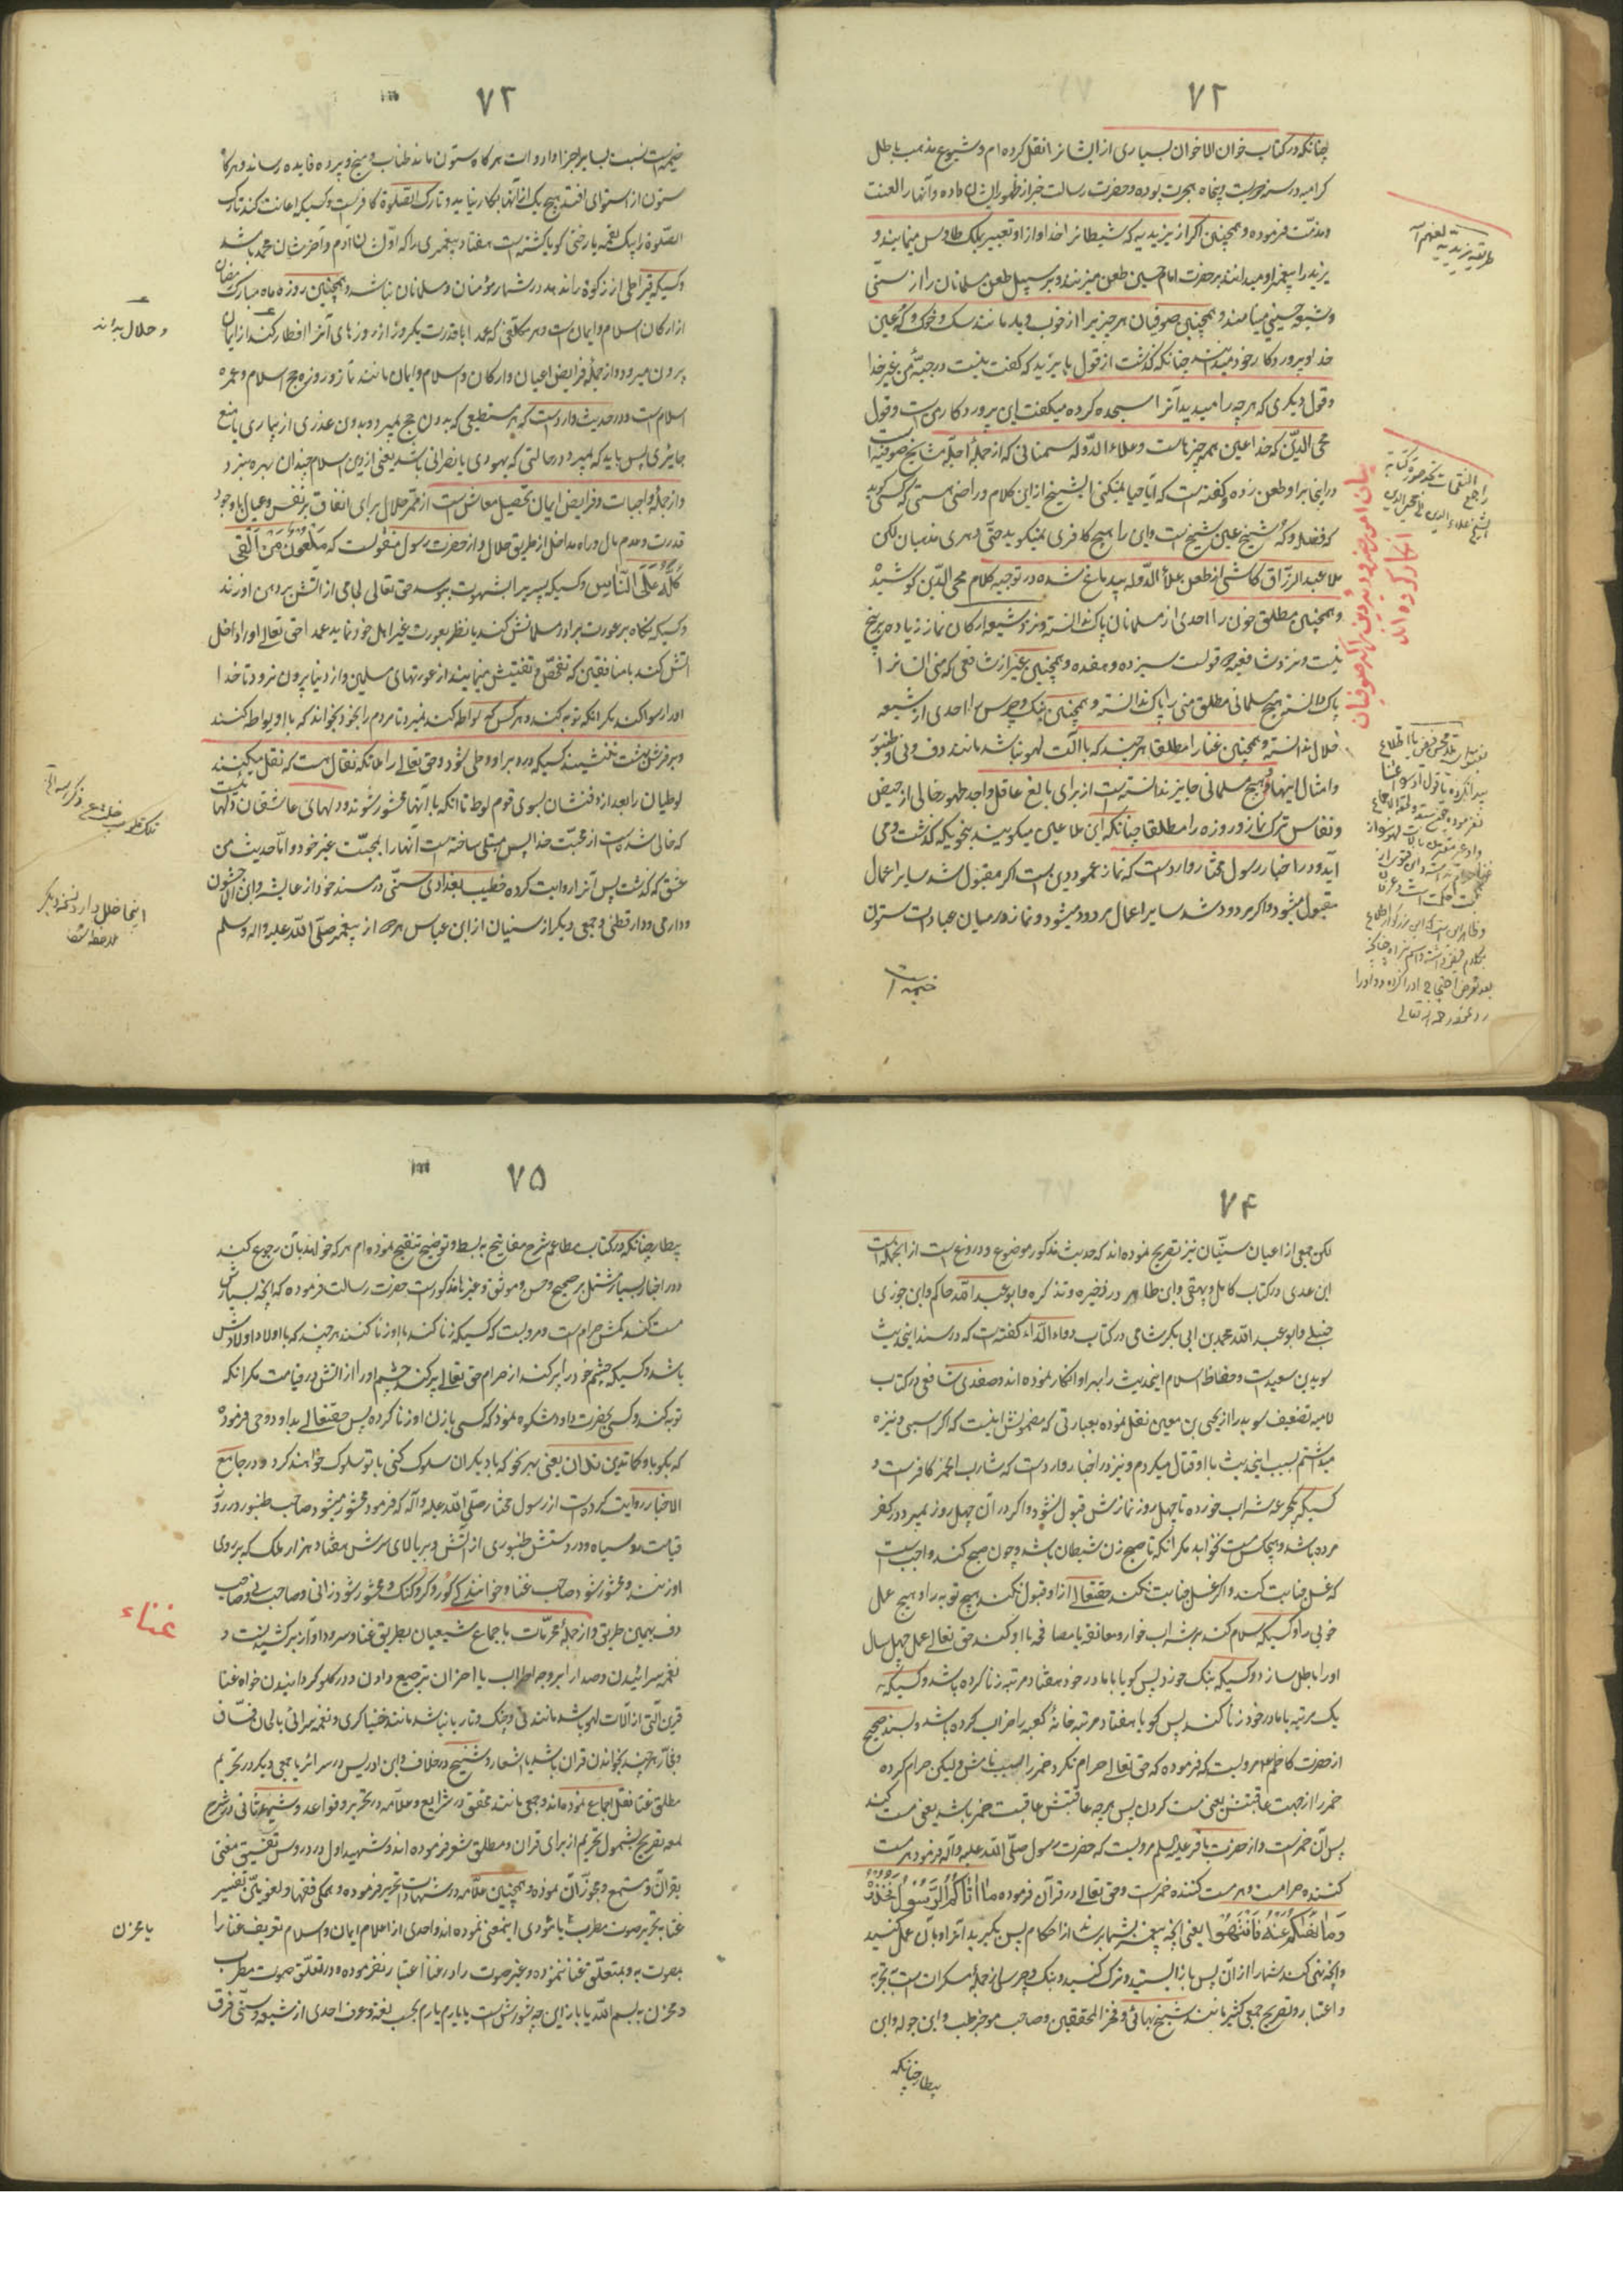 ۷۲
چنانکه در کتاب خوان الاخوان بسیاری از ایشانرا نقل کرده‌ام و شیوع مذهب باطل
کرامیه در سنه دویست و پنجاه هجرت بوده و حضرت رسالت خبر از ظهور ایشان داده و آنها را لعنت
و مذمت فرموده و همچنین اکراد یزیدیه که شیطانرا خدا و از او تعبیر بملک طاوس مینمایند و
یزید را پیغمبر او میدانند بر حضرت امام حسین طعن میزنند و بر سبیل طعن مسلمانان را از سنی
و شیعه حسینی مینامند و همچنین صوفیان هر چیزیرا از خوب و بد مانند سک و خوک و کُه عین
خدا و پروردکار خود میدانند چنانکه کذشت از قول بایزید که کفت نیست در جبّهٔ من غیر خدا
و قول دیکری که هر چه را میدید آنرا سجده کرده میکفت این پروردکار من است و قول
محی الدّین که خدا عین همه چیزهاست و علاء الدّوله سمنانی که از جملهٔ اجلّهٔ مشایخ صوفیّه است
در اینجا بر او طعن زده و کفته است که آیا حیا نمیکنی ایشیخ از این کلام و راضی هستی که کسی کوید
که فضله و کُه شیخ عین شیخ است و این را هیچ کافری نمیکوید حتّی دهری مذهبان لکن
ملا عبد الرزّاق کاشی از طعن علاء الدّوله بیدماغ شده در توجیه کلام محی الدّین کوشیده
و همچنین مطلق خون را احدی از مسلمانان پاک ندانسته و نزد شیعه ارکان نماز زیاده بر پنج
نیست و نزد شافعیه دو قولست سیزده و هفده و همچنین بغیر از شافعی که منی انسانرا
پاک دانسته هیچ مسلمانی مطلق منی را پاک ندانسته و همچنین بنک و چرس را احدی از شیعه
حلال ندانسته و همچنین غنا را مطلقا هر چند که با آلت لهو نباشد مانند دف و نی و طنبور
و امثال اینها و هیچ مسلمانی جایز ندانسته است از برای بالغ عاقل واجد طهور خالی از حیض
و نفاس ترک نماز و روزه را مطلقا چنانکه این ملاعین میکویند بنحویکه کذشت و می
آید و در اخبار رسول مختار وارد است که نماز عمود دین است اکر مقبول شد سایر اعمال
مقبول میشود و اکر مردود شد سایر اعمال مردود میشود و نماز در میان عبادات ستون
خیمه است
طریقه یزیدیه لعنهم الله
بیان امور ضروریه دین که اکثر صوفیان
انکار کرده‌اند
۷۳
خیمه است نسبت بسایر اجزا و ادوات هرکاه ستون ماند طناب و میخ و پرده فایده رساند و هرکاه
ستون از استوای افتد هیچ یک از آنها بکار نیاید و تارک الصّلوة کافر است و کسیکه اعانت کند تارک
الصّلوة را بیک لقمه یا رختی کویا کشته است هفتاد پیغمبری را که اوّلشان آدم و آخرشان محمّد باشد
و کسیکه قیراطی از زکوة را ندهد در شمار مؤمنان و مسلمانان نباشد و همچنین روزهٔ ماه مبارک رمضان
از ارکان اسلام و ایمان است و هر مکلفی که عمدا با قدرت یکروز از روزهای آنرا افطار کند از ایمان
بیرون میرود و از جملهٔ فرایض اعیان و ارکان و اسلام و ایمان مانند نماز و روزه حج اسلام و عمره
اسلام است و در حدیث وارد است که هر مستطیعی که بدون حج بمیرد و بدون عذری از بیماری یا منع
جایزی پس باید که بمیرد در حالتی که یهودی یا نصرانی باشد یعنی از دین اسلام چندان بهره نبرد
و از جملهٔ واجبات و فرایض ایمان تحصیل معاش است از ممرّ حلال برای انفاق بر نفس و عیال با وجود
قدرت و عدم مال و راه مداخل از طریق حلال و از حضرت رسول منقولست که مَلْعُونٌ مَنْ اَلْقی
کَلَّهُ عَلَی النّاسِ و کسیکه پسریرا بشهوت ببوسد حق تعالی لجامی از آتش بر دهن او زند
و کسیکه نکاه بر عورت برادر مسلمانش کند یا نظر بعورت غیر اهل خود نماید عمدا حق تعالی او را داخل
آتش کند با منافقین که تفحّص و تفتیش مینمایند از عورتهای مسلمین و از دنیا بیرون نرود تا خدا
او را رسوا کند مکر انکه توبه کند و هر کس که لواط کند نمیرد تا مردم را بخود بخواند که با او لواط کنند
و بر فرش بهشت ننشیند کسیکه در دبر او وطی شود و حق تعالی را ملائکه نقال هست که نقل میکنند
لوطیان را بعد از دفنشان بسوی قوم لوط تا انکه با آنها محشور شوند و دلهای عاشقان دلهائیست
که خالی شده است از محبّت خدا پس مبتلی ساخته است آنها را بمحبّت غیر خود و امّا حدیث من
عشق که کذشت پس آنرا روایت کرده خطیب بغدادی سنّی در مسند خود از عایشه و ابن الجوزی
و دارمی و دارقطنی و جمعی دیکر از سنیان از ابن عباس هر دو از پیغمبر صلّی الله علیه و اله و سلم
و حلال بداند
۷۴
لکن جمعی از اعیان سنّیان نیز تصریح نموده‌اند که حدیث مذکور موضوع و دروغ است از انجمله است
ابن عدی در کتاب کامل و بیهقی و ابن طاهر در ذخیره و تذکره و ابو عبد الله حاکم و ابن جوزی
حنبلی و ابو عبد الله محمد بن ابی بکر شامی در کتاب دواء الدّاء کفته است که در سند اینحدیث
سوید بن سعید است و حفاظ اسلام اینحدیث را بر او انکار نموده‌اند و صفدی شافعی در کتاب
لامیه تضعیف سوید را از یحیی بن معین نقل نموده بعبارتی که مضمونش اینست که اکر اسبی و نیزه
میداشتم بسبب اینحدیث با او قتال میکردم و نیز در اخبار وارد است که شارب الخمر کافر است و
کسیکه یکجرعه شراب خورده تا چهل روز نمازش قبول نشود و اکر در آن چهل روز بمیرد در کفر
مرده باشد و هیچکس مست نخوابد مکر انکه تا صبح زن شیطان باشد و چون صبح کند واجب است
که غسل جنابت کند و اکر غسل جنابت نکند حقتعالی از او قبول نکند هیچ توبه را و هیچ عمل
خوبی را و کسیکه سلام کند بر شراب خوار و معانقه یا مصافحه با او کند حق تعالی عمل چهل سال
او را باطل سازد و کسیکه بنک خورد پس کویا با مادر خود هفتاد مرتبه زنا کرده باشد و کسیکه
یک مرتبه با مادر خود زنا کند پس کویا هفتاد مرتبه خانهٔ کعبه را خراب کرده باشد و بسند صحیح
از حضرت کاظم ع مرویست که فرموده که حق تعالی حرام نکرد خمر را بسبب نامش ولیکن حرام کرده
خمر را از جهت عاقبتش یعنی مست کردن پس هر چه عاقبتش عاقبت خمر باشد یعنی مست کند
پس آن خمر است و از حضرت باقر علیه السلم مرویست که حضرت رسول صلّی الله علیه و آله فرمود هر مست
کننده حرامست و هر مست کننده خمر است و حق تعالی در قرآن فرموده مٰا اٰتٰاکُمُ الرَّسُولُ فَخُذُوهُ
وَمٰا نَهٰیکُمْ عَنْهُ فَانْتَهُوا یعنی انچه پیغمبر بشما رساند از احکام پس بکیرید آنرا و بآن عمل کنید
و انچه نهی کند شما را از آن پس باز ایستید و ترک کنید و بنک و چرس از جملهٔ مسکرات است بتجربه
و اعتبار و تصریح جمعی کثیر مانند شیخ بهائی و فخر المحققین و صاحب موجز طب و ابن جزله و ابن
بیطار چنانکه
۷۵
بیطار چنانکه در کتاب مطاعم شرح مفاتیح به بسط و توضیح تنقیح نموده‌ام هر که خواهد بآن رجوع کند
و در اخبار بسیار مشتمل بر صحیح و حسن و موثق و غیرها مذکور است حضرت رسالت فرموده که انچه بسیارش
مست کند کمش حرام است و مرویست که کسیکه زنا کند با او زنا کنند هر چند که با اولاد اولادش
باشد و کسیکه چشم خود را پر کند از حرام حق تعالی پر کند چشم او را از آتش در قیامت مکر انکه
توبه کند و کسی بحضرت داود شکوه نمود که کسی با زن او زنا کرده پس حقتعالی بداود وحی فرموده
که بکو باو کما تدین تدان یعنی بهر نحو که با دیکران سلوک کنی با تو سلوک خواهند کرد و در جامع
الاخبار روایت کرده است از رسول مختار صلّی الله علیه و آله که فرمود محشور میشود صاحب طنبور در روز
قیامت رو سیاه و در دستش طنبوری از آتش و بر بالای سرش هفتاد هزار ملک که بر روی
او زنند و محشور شود صاحب غنا و خوانندکی کور و کر و کنک و محشور شود زانی و صاحب نی و صاحب
دف بهمین طریق و از جملهٔ محرّمات باجماع شیعیان بطریق غنا و سرود آواز بر کشیدنست و
نغمه سرائیدن و صدا را بر وجه اطراب یا احزان ترجیع دادن و در کلو کردانیدن خواه غنا
قرین آلتی از آلات لهو باشد مانند نی و چنک و تار یا نباشد مانند خنیا کری و نغمه سرائی بالحان فسّاق
و فجّار هر چند بخواندن قرآن باشد یا اشعار و شیخ در خلاف و ابن ادریس در سرائر با جمعی دیکر در تحریم
مطلق غنا نقل اجماع نموده‌اند و جمعی مانند محقق در شرایع و علامه در تحریر و قواعد و شهید ثانی در شرح
لمعه تصریح بشمول تحریم از برای قرآن و مطلق شعر فرموده‌اند و شهید اول در دروس تفسیق مغنی
بقرآن و مستمع و مجوّز آن نموده و همچنین علامه در شهادات تحریر فرموده و همکی فقها و لغویان تفسیر
غنا بتحریر صوت مطرب یا مؤدی اینمعنی نموده‌اند و احدی از اعلام ایمان و اسلام تعریف غنا را
بصوت به و بمتعلّق غنا ننموده و غیر صوت را در غنا اعتبار نفرموده و در تعلّق صوت مطرب
و محزن به بسم الله یا بار این چه شورش است یا یارم یارم بحسب لغة و عرف احدی از شیعه و سنّی فرق
غناء
یا محزن